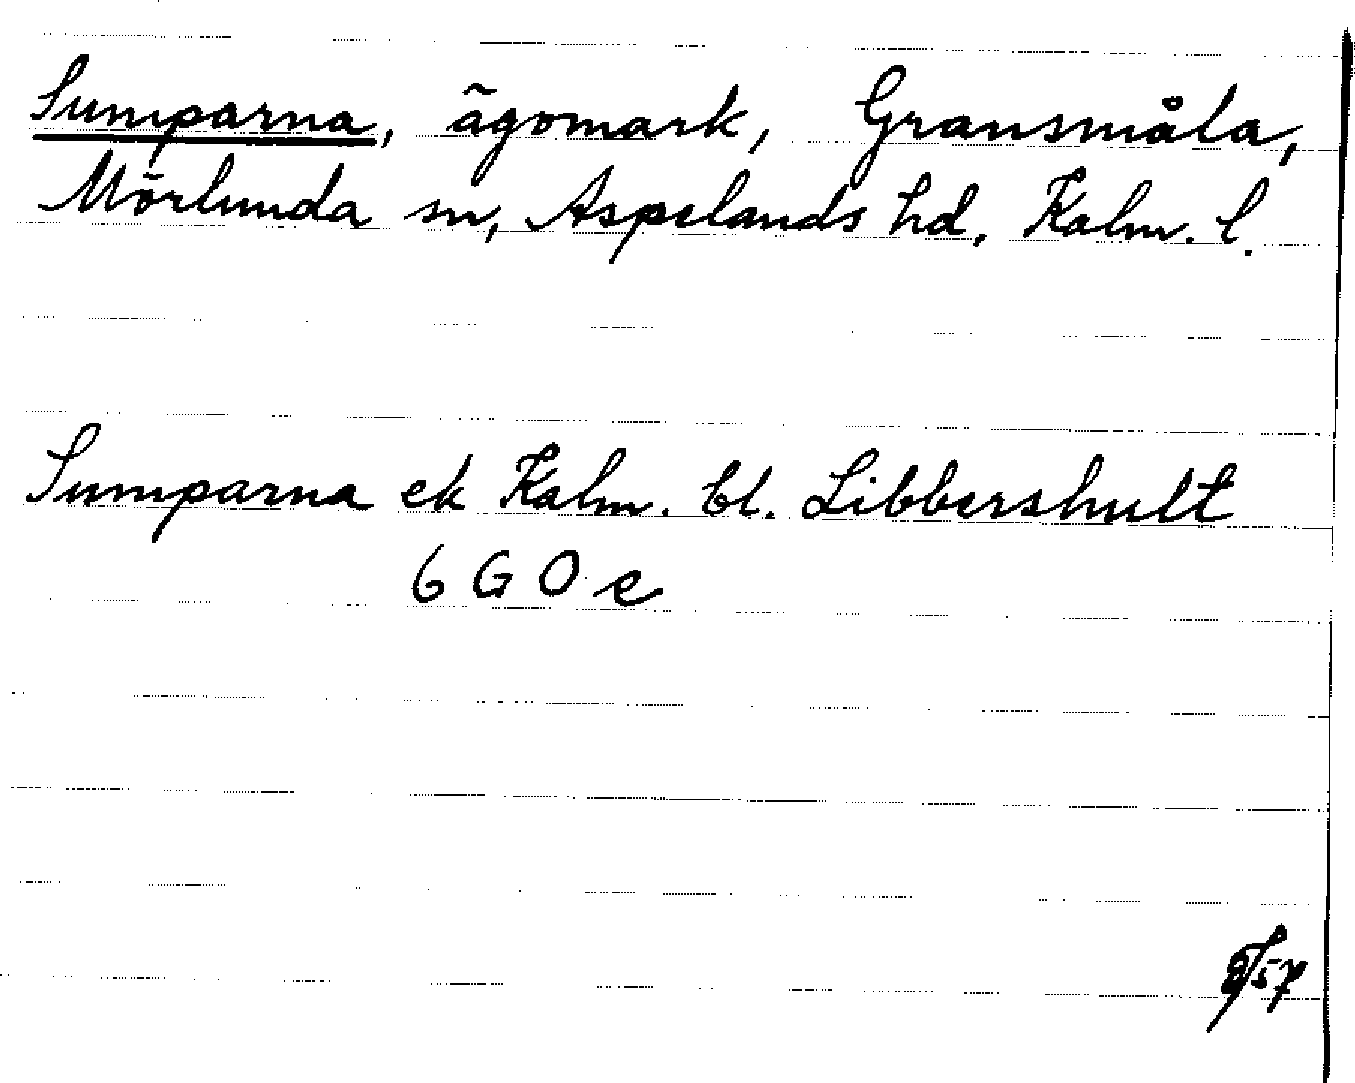 Sumparna, ägomark, Gransmåla,
Mörlunda sn, Aspelands hd, Kalm. l.
Sumparna ek Kalm. bl. Libbershult
6 G 0 e